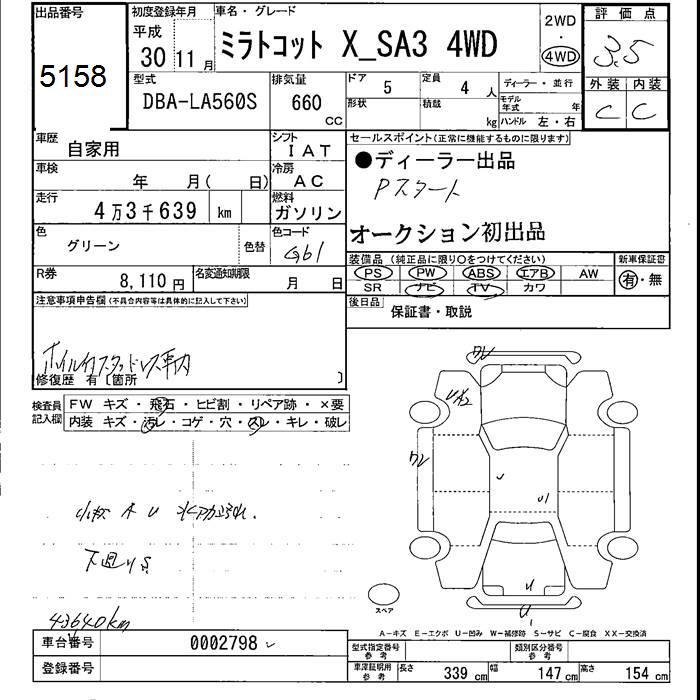 出品番号 初度登録年月 車名・グレード 2WD 評価点
5158 平成 30 11月 ミラトコット X_SA3 4WD ・ 4WD 3.5
型式 排気量 ドア 5 定員 4人 ディーラー・並行 外装 内装
DBA-LA560S 660 CC 形状 積載 kg モデル年式 年 C C
ハンドル 左・右
車歴 自家用 シフト IAT セールスポイント(正常に機能するものに限ります)
車検 年 月( 日) 冷房 AC ●ディーラー出品
Pスタート
走行 4万3千639 km 燃料 ガソリン
色 グリーン 色替 色コード G61 オークション初出品
装備品 (純正品に限り○をつけてください) 新車保証書
R券 8,110円 名変通知期限 月 日 PS PW ABS エアB AW 有・無
SR ナビ TV カワ
注意事項申告欄(不具合内容等は具体的に記入して下さい) 後日品 保証書・取説
ホイル付スタッドレス車内
修復歴 有〔箇所 〕
検査員記入欄 FW キズ・飛石・ヒビ割・リペア跡・×要
内装 キズ・汚レ・コゲ・穴・スレ・キレ・破レ
ワレ
UA2
ワレ
小傷 A U
下廻りS
U
スペア
43640km
A−キズ E−エクボ U−凹み W−補修跡 S−サビ C−腐食 XX−交換済
車台番号 0002798 型式指定番号 参考 類別区分番号 参考
登録番号 車庫証明用 参考 長さ 339cm 幅 147cm 高さ 154cm